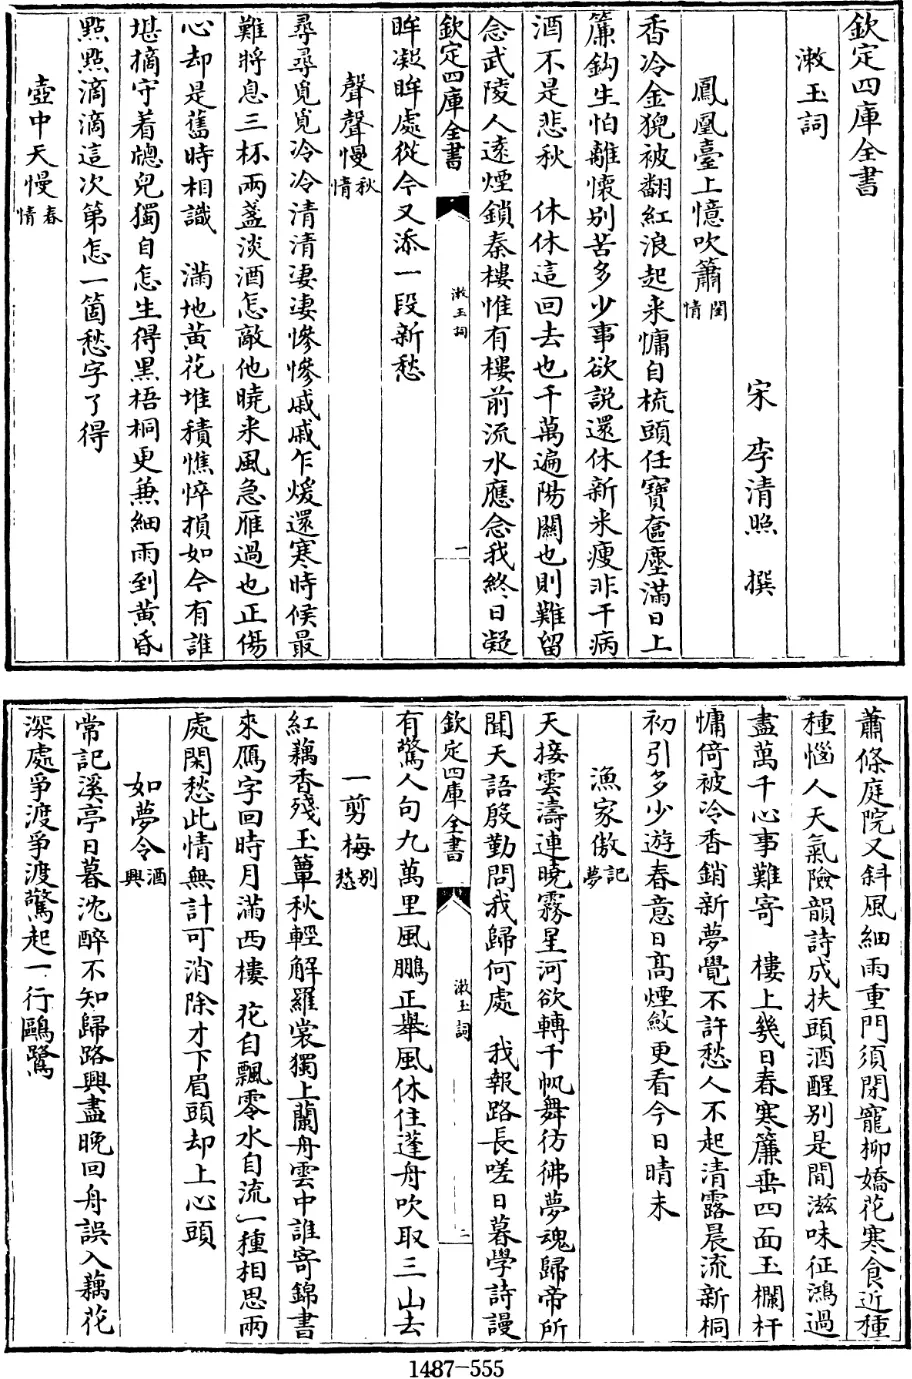 欽定四庫全書
漱玉詞
宋 李清照 撰
鳳凰臺上憶吹簫閨情
香冷金猊被翻紅浪起來慵自梳頭任寶奩塵滿日上
簾鈎生怕離懷别苦多少事欲説還休新來瘦非干病
酒不是悲秋 休休這回去也千萬遍陽關也則難留
念武陵人遠煙鎖秦樓惟有樓前流水應念我終日凝
欽定四庫全書
漱玉詞
一
眸凝眸處從今又添一段新愁
聲聲慢秋情
尋尋覓覓冷冷清清凄凄慘慘戚戚乍煖還寒時候最
難將息三杯兩盞淡酒怎敵他曉來風急雁過也正傷
心却是舊時相識 滿地黄花堆積憔悴損如今有誰
堪摘守着牕兒獨自怎生得黑梧桐更兼細雨到黄昏
點點滴滴這次第怎一箇愁字了得
壺中天慢春情
蕭條庭院又斜風細雨重門須閉寵柳嬌花寒食近種
種惱人天氣險韻詩成扶頭酒醒别是閒滋味征鴻過
盡萬千心事難寄 樓上幾日春寒簾垂四面玉欄杆
慵倚被冷香銷新夢覺不許愁人不起清露晨流新桐
初引多少遊春意日高煙斂更看今日晴未
漁家傲記夢
天接雲濤連曉霧星河欲轉千帆舞彷彿夢魂歸帝所
聞天語殷勤問我歸何處 我報路長嗟日暮學詩謾
欽定四庫全書
漱玉詞
二
有驚人句九萬里風鵬正舉風休住蓬舟吹取三山去
一剪梅别愁
紅藕香殘玉簟秋輕解羅裳獨上蘭舟雲中誰寄錦書
來鴈字回時月滿西樓 花自飄零水自流一種相思兩
處閑愁此情無計可消除才下眉頭却上心頭
如夢令酒興
常記溪亭日暮沈醉不知歸路興盡晚回舟誤入藕花
深處爭渡爭渡驚起一行鷗鷺
1487-555